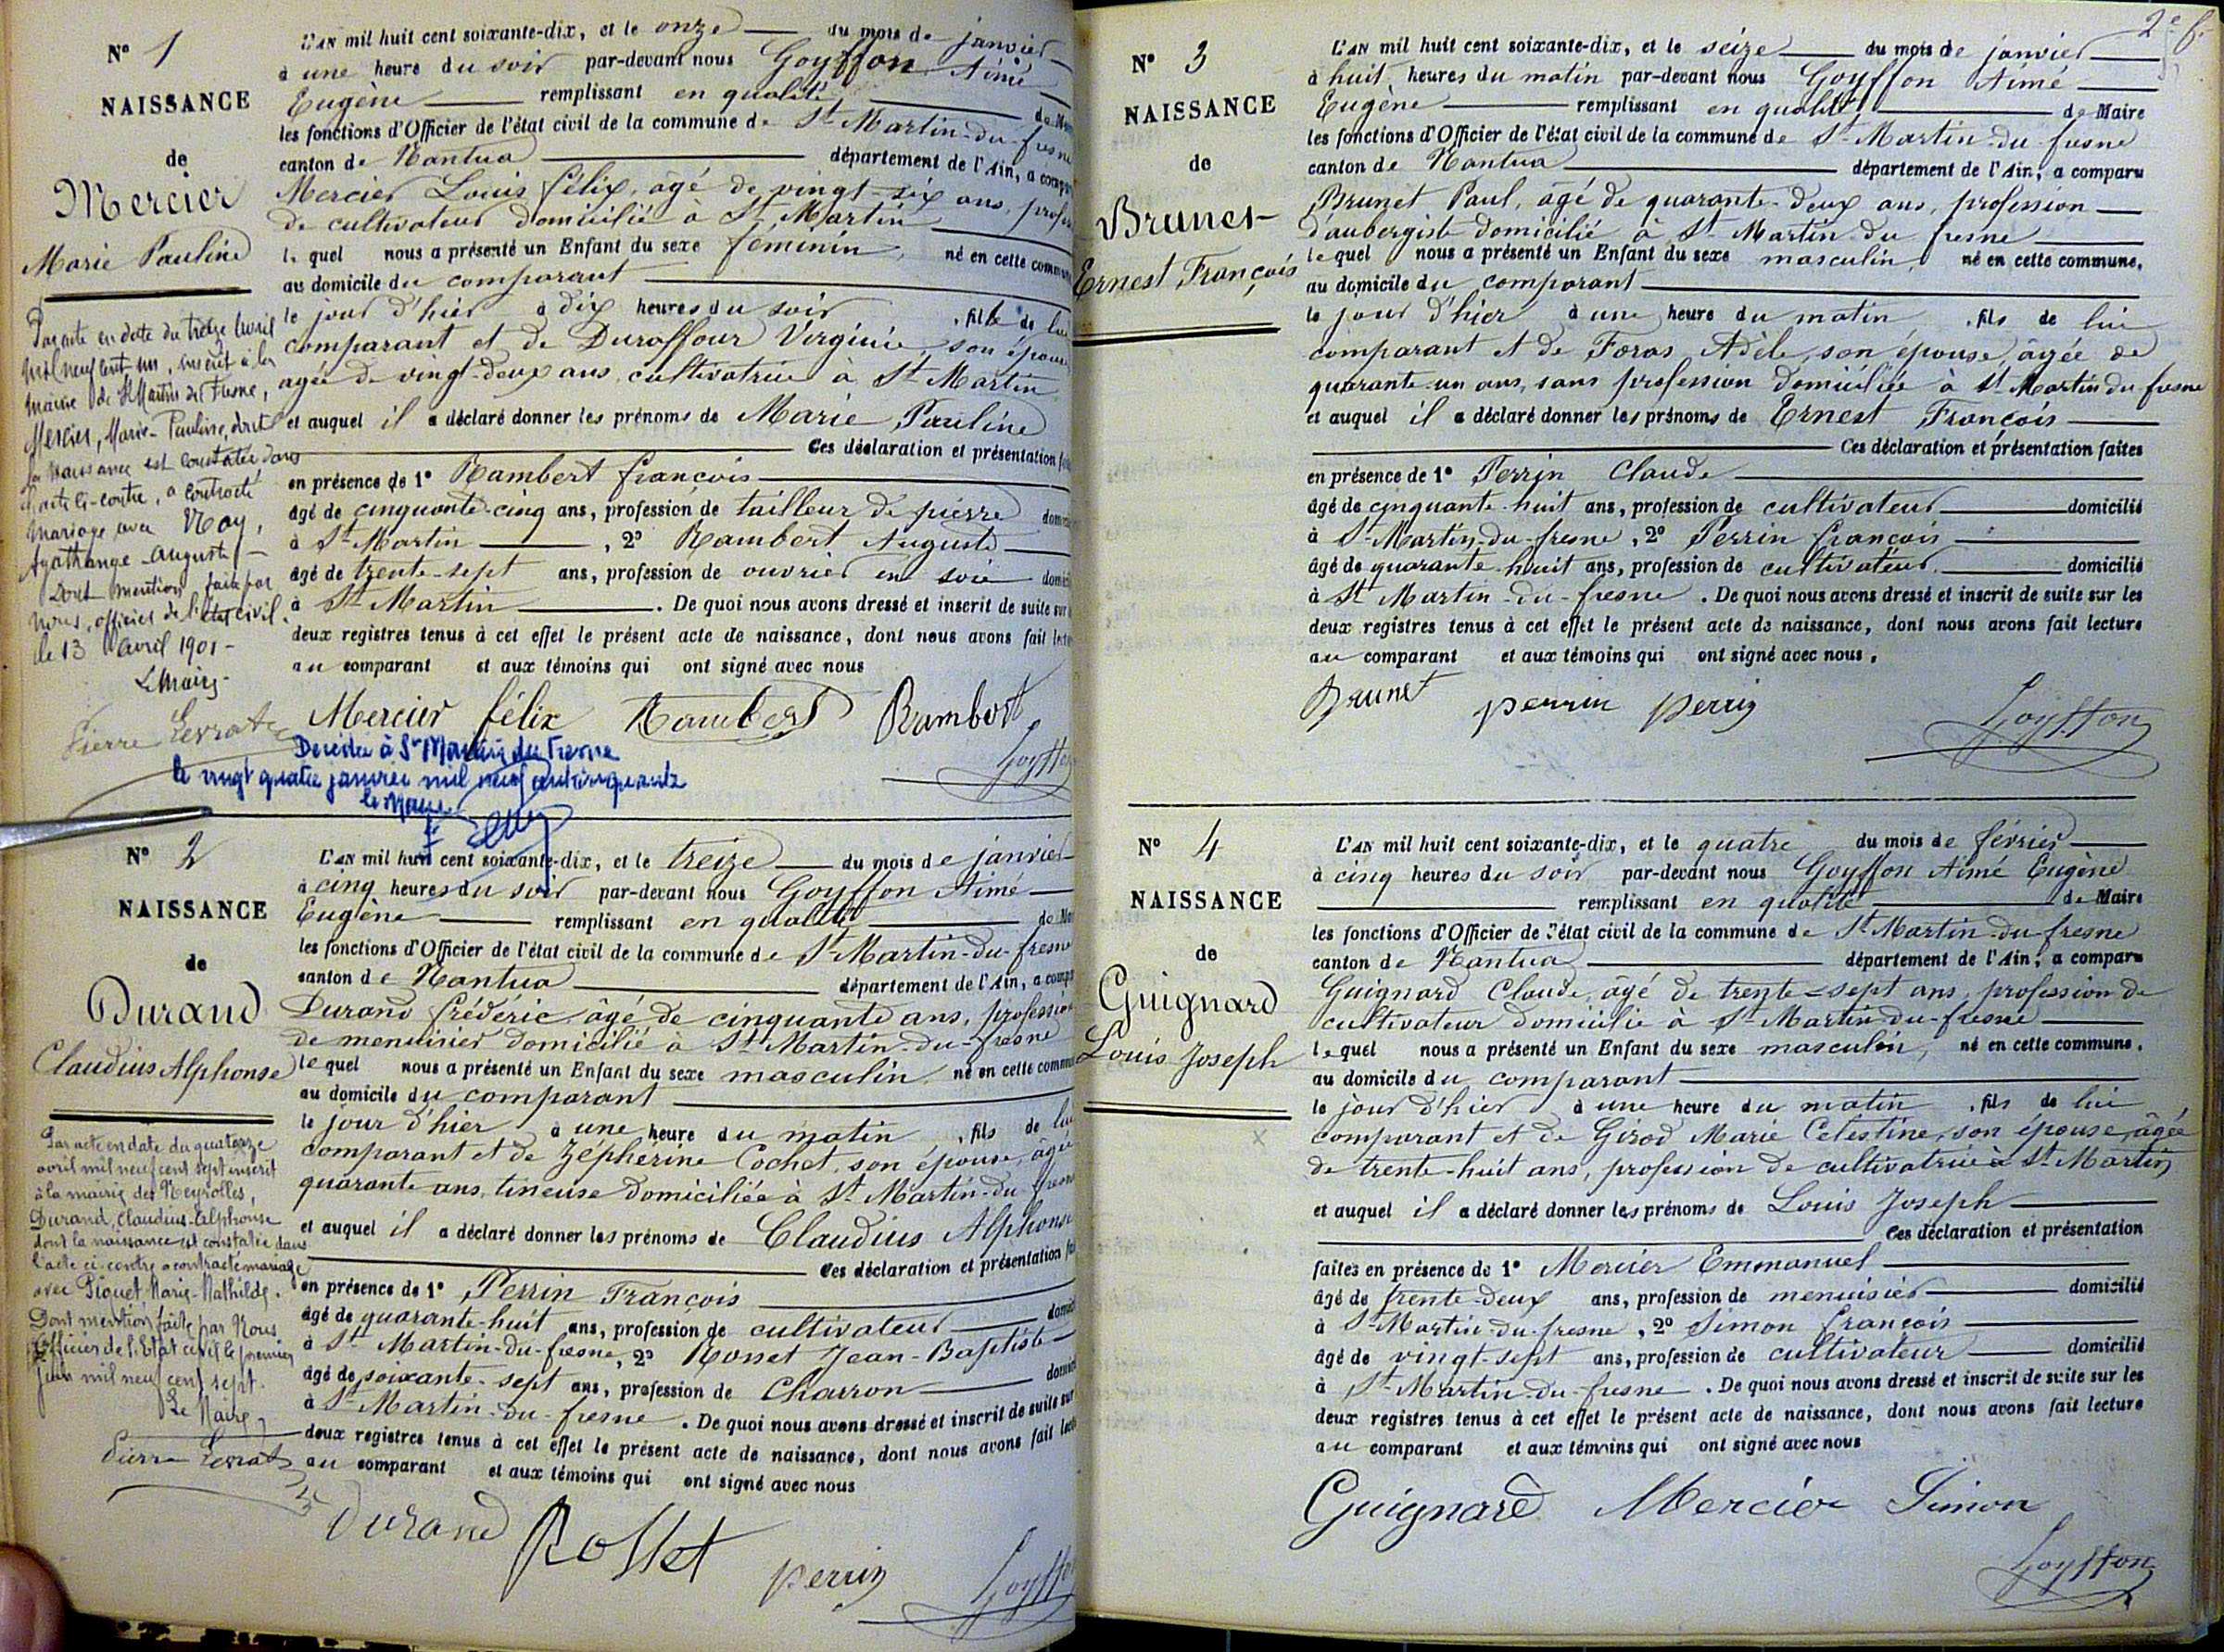 N° 1
NAISSANCE
de
Mercier
Marie Pauline
Par acte en date du treize avril
mil neuf cent un, inscrit à la
mairie de St Martin du Fresne,
Mercier, Marie-Pauline, dont
la naissance est constatée dans
l'acte ci-contre, a contracté
mariage avec Nay,
Agathange Auguste —
Dont mention faite par
nous, officier de l'état civil.
le 13 avril 1901 -
Le Maire
Pierre Levrat
L'AN mil huit cent soixante-dix, et le onze du mois de janvier
à une heure du soir par-devant nous Goyffon Aimé
Eugène remplissant en qualité de
les fonctions d'Officier de l'état civil de la commune de St Martin-du-fresne
canton de Nantua département de l'Ain, a
Mercier Louis félix, âgé de vingt-six ans,
de cultivateur domicilié à St Martin
lequel nous a présenté un Enfant du sexe féminin, né en cette
au domicile du comparant
le jour d'hier à dix heures du soir, fille de lui
comparant et de Duraffour Virginie, son épouse,
agée de vingt-deux ans, cultivatrice à St Martin
et auquel il a déclaré donner les prénoms de Marie Pauline
Ces déclaration et présentation
en présence de 1° Rambert françois
âgé de cinquante-cinq ans, profession de tailleur de pierre
à St Martin, 2° Rambert Auguste
âgé de trente-sept ans, profession de ouvrier en soie
à St Martin. De quoi nous avons dressé et inscrit de suite sur
deux registres tenus à cet effet le présent acte de naissance, dont nous avons fait
au comparant et aux témoins qui ont signé avec nous
Mercier félix Rambert Rambert
Goyffon
Décédée à St Martin du Fresne
le vingt quatre janvier mil neuf cent cinquante
le Maire
N° 2
NAISSANCE
de
Durand
Claudius Alphonse
Par acte en date du quatorze
avril mil neuf cent sept inscrit
à la mairie des Neyrolles,
Durand, Claudius-Alphonse
dont la naissance est constatée dans
l'acte ci-contre a contracté mariage
avec Piquet Marie-Mathilde.
Dont mention faite par Nous
Officier de l'Etat civil le premier
juin mil neuf cent sept.
Le Maire,
Pierre Levrat
L'AN mil huit cent soixante-dix, et le treize du mois de janvier
à cinq heures du soir par-devant nous Goyffon Aimé
Eugène remplissant en qualité de
les fonctions d'Officier de l'état civil de la commune de St Martin-du-fresne
canton de Nantua département de l'Ain, a
Durand frédéric, âgé de cinquante ans, profession
de menuisier domicilié à St Martin-du-fresne
lequel nous a présenté un Enfant du sexe masculin, né en cette
au domicile du comparant
le jour d'hier à une heure du matin, fils de lui
comparant et de Zéphérine Cochet, son épouse, âgée
quarante ans, tineuse domiciliée à St Martin-du-fresne
et auquel il a déclaré donner les prénoms de Claudius Alphonse
Ces déclaration et présentation
en présence de 1° Perrin François
âgé de quarante-huit ans, profession de cultivateur
à St Martin-du-fresne, 2° Rosset Jean-Baptiste
âgé de soixante-sept ans, profession de Charron
à St Martin-du-fresne. De quoi nous avons dressé et inscrit de suite sur
deux registres tenus à cet effet le présent acte de naissance, dont nous avons fait
au comparant et aux témoins qui ont signé avec nous
Durand Rosset perrin
Goyffon
2e f.
N° 3
NAISSANCE
de
Brunet
Ernest François
L'AN mil huit cent soixante-dix, et le seize du mois de janvier
à huit heures du matin par-devant nous Goyffon Aimé
Eugène remplissant en qualité de Maire
les fonctions d'Officier de l'état civil de la commune de St Martin-du-fresne
canton de Nantua département de l'Ain, a comparu
Brunet Paul, âgé de quarante-deux ans, profession
d'aubergiste domicilié à St Martin du fresne
lequel nous a présenté un Enfant du sexe masculin, né en cette commune,
au domicile du comparant
le jour d'hier à une heure du matin, fils de lui
comparant et de Foras Adèle, son épouse, âgée de
quarante-un ans, sans profession domiciliée à St Martin du fresne
et auquel il a déclaré donner les prénoms de Ernest François
Ces déclaration et présentation faites
en présence de 1° Perrin Claude
âgé de cinquante-huit ans, profession de cultivateur domicilié
à St Martin-du-fresne, 2° Perrin françois
âgé de quarante-huit ans, profession de cultivateur domicilié
à St Martin-du-fresne. De quoi nous avons dressé et inscrit de suite sur les
deux registres tenus à cet effet le présent acte de naissance, dont nous avons fait lecture
au comparant et aux témoins qui ont signé avec nous.
Brunet perrin perrin
Goyffon
N° 4
NAISSANCE
de
Guignard
Louis Joseph
L'AN mil huit cent soixante-dix, et le quatre du mois de février
à cinq heures du soir par-devant nous Goyffon Aimé Eugène
remplissant en qualité de Maire
les fonctions d'Officier de l'état civil de la commune de St Martin-du-fresne
canton de Nantua département de l'Ain, a comparu
Guignard Claude, âgé de trente-sept ans, profession de
cultivateur domicilié à St Martin-du-fresne
lequel nous a présenté un Enfant du sexe masculin, né en cette commune,
au domicile du comparant
le jour d'hier à une heure du matin, fils de lui
comparant et de Girod Marie Celestine, son épouse, âgée
de trente-huit ans, profession de cultivatrice à St Martin
et auquel il a déclaré donner les prénoms de Louis Joseph
Ces déclaration et présentation
faites en présence de 1° Mercier Emmanuel
âgé de trente-deux ans, profession de menuisier domicilié
à St Martin-du-fresne, 2° Simon françois
âgé de vingt-sept ans, profession de cultivateur domicilié
à St Martin-du-fresne. De quoi nous avons dressé et inscrit de suite sur les
deux registres tenus à cet effet le présent acte de naissance, dont nous avons fait lecture
au comparant et aux témoins qui ont signé avec nous
Guignard Mercier Simon
Goyffon